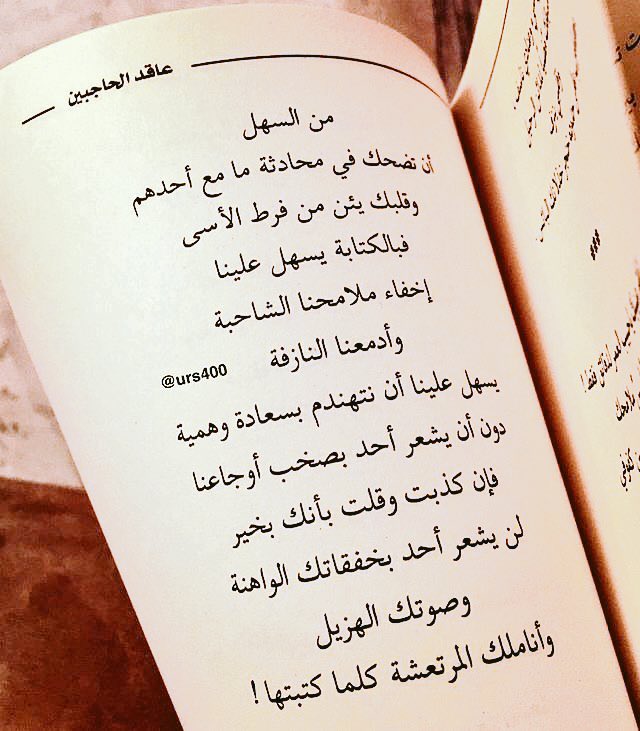 عاقد الحاجبين
من السهل
أن تضحك في محادثة ما مع أحدهم
وقلبك يئن من فرط الأسى
فبالكتابة يسهل علينا
إخفاء ملامحنا الشاحبة
وأدمعنا النازفة
@urs400
يسهل علينا أن نتهندم بسعادة وهمية
دون أن يشعر أحد بصخب أوجاعنا
فإن كذبت وقلت بأنك بخير
لن يشعر أحد بخفقاتك الواهنة
وصوتك الهزيل
وأناملك المرتعشة كلما كتبتها !